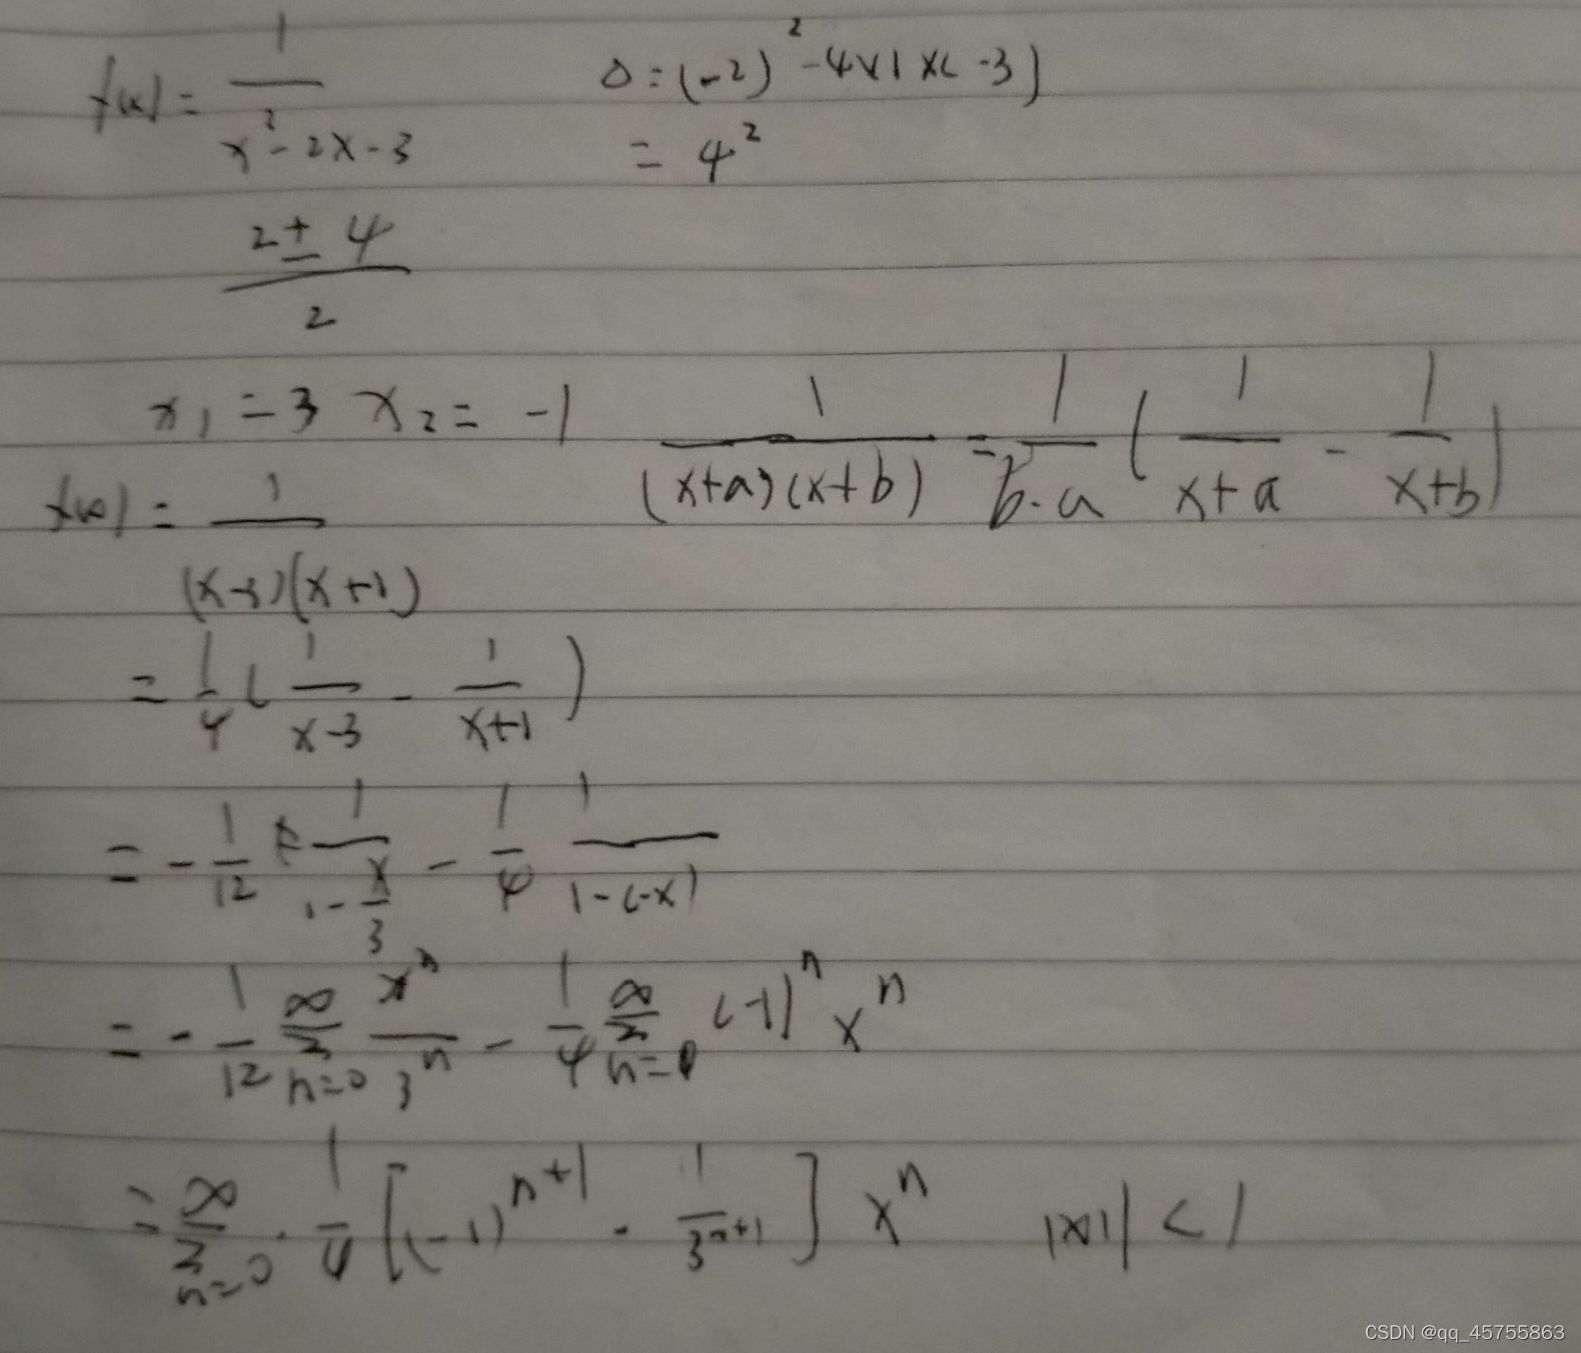 f(x) = 1/(x² - 2x - 3)    Δ = (-2)² - 4×1×(-3)
= 4²
(2 ± 4)/2
x₁ = 3  x₂ = -1    1/((x+a)(x+b)) = 1/(b-a) (1/(x+a) - 1/(x+b))
f(x) = 1/((x-3)(x+1))
= 1/4 (1/(x-3) - 1/(x+1))
= - 1/12 1/(1 - x/3) - 1/4 1/(1-(-x))
= - 1/12 ∑_{n=0}^{∞} xⁿ/3ⁿ - 1/4 ∑_{n=0}^{∞} (-1)ⁿ xⁿ
= ∑_{n=0}^{∞} · 1/4 [(-1)ⁿ⁺¹ - 1/3ⁿ⁺¹] xⁿ    |x| < 1
CSDN @qq_45755863